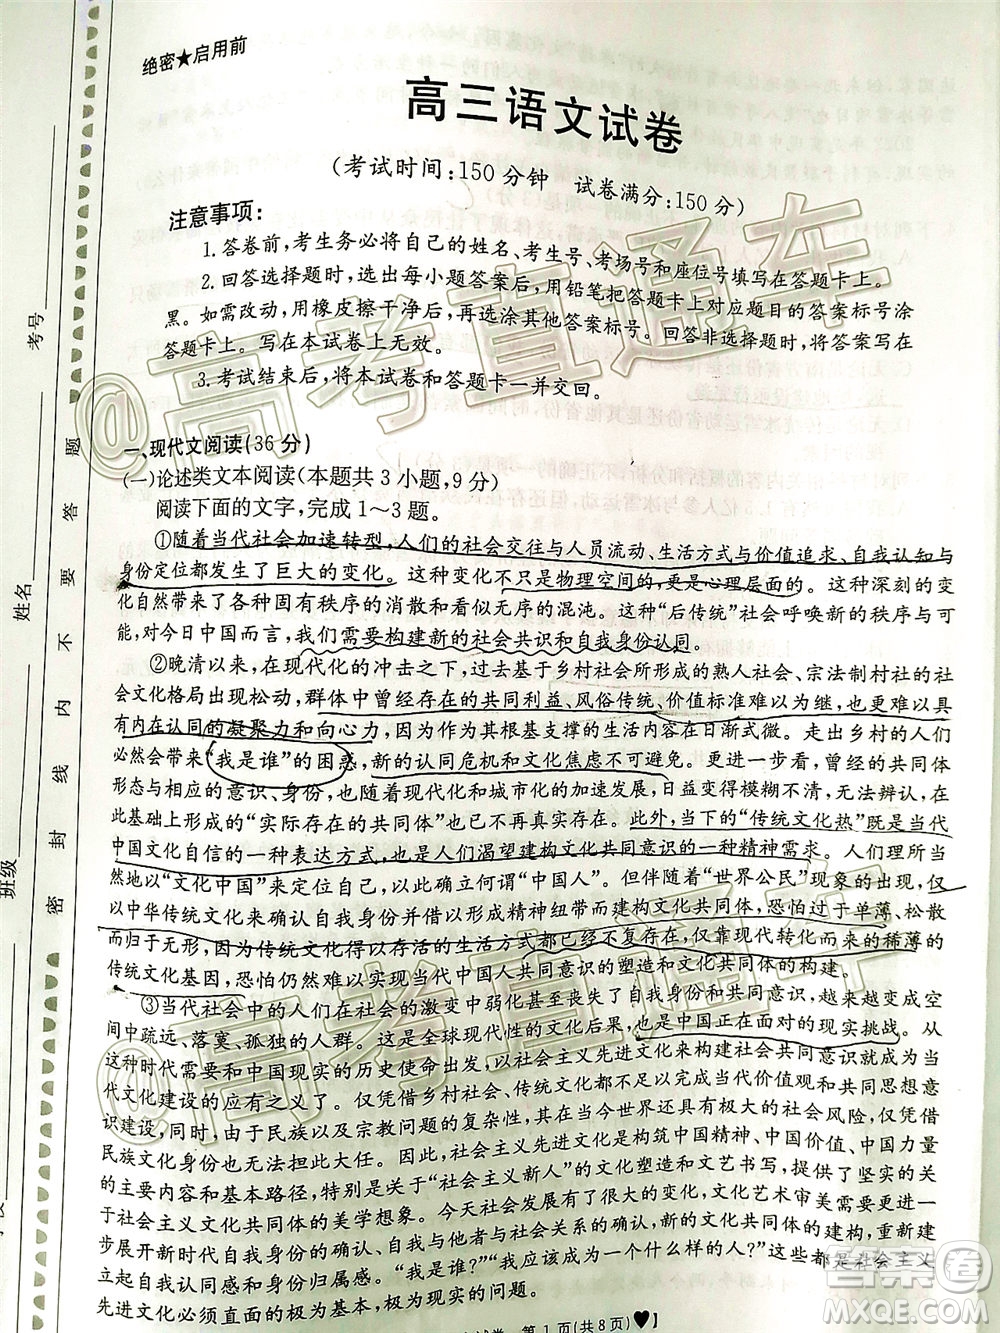 绝密★启用前
高三语文试卷
(考试时间:150分钟 试卷满分:150分)
注意事项:
1.答卷前,考生务必将自己的姓名、考生号、考场号和座位号填写在答题卡上。
2.回答选择题时,选出每小题答案后,用铅笔把答题卡上对应题目的答案标号涂
黑。如需改动,用橡皮擦干净后,再选涂其他答案标号。回答非选择题时,将答案写在
答题卡上。写在本试卷上无效。
3.考试结束后,将本试卷和答题卡一并交回。
一、现代文阅读(36分)
(一)论述类文本阅读(本题共3小题,9分)
阅读下面的文字,完成1～3题。
①随着当代社会加速转型,人们的社会交往与人员流动、生活方式与价值追求、自我认知与
身份定位都发生了巨大的变化。这种变化不只是物理空间的,更是心理层面的。这种深刻的变化
自然带来了各种固有秩序的消散和看似无序的混沌。这种“后传统”社会呼唤新的秩序与可
能,对今日中国而言,我们需要构建新的社会共识和自我身份认同。
②晚清以来,在现代化的冲击之下,过去基于乡村社会所形成的熟人社会、宗法制村社的社
会文化格局出现松动,群体中曾经存在的共同利益、风俗传统、价值标准难以为继,也更难以具
有内在认同的凝聚力和向心力,作为其根基支撑的生活内容在日渐式微。走出乡村的人们
必然会带来“我是谁”的困惑,新的认同危机和文化焦虑不可避免。更进一步看,曾经的共同体
相对应的意识、身份,随着现代化和城市化的加速发展,日益变得模糊不清、无法辨认,在
此基础上形成的“实际存在的共同体”也不复存在。此外,当下的“传统文化热”既是当代
中国文化自信的一种表达方式,也是人们渴望建构文化共同意识的一种精神需求。人们当
然地以“文化中国”来定位自己,以此确立何谓“中国人”。随着“世界公民”现象的出现,仅
以中华传统文化来确认自我身份并借以形成精神纽带而建构文化共同体,恐怕过于单薄、松散
而归于无形,因为传统文化得以存活的生活方式都已经不复存在,靠现代转化而来的稀薄的
传统文化基因,恐怕尚难以实现当代中国人共同意识的塑造和文化共同体的构建。
③当代社会中的人们在社会的激变中迷失甚至丧失了自我身份和共同意识,越来越成空
间中疏远、落寞、孤独的人群。这是全球现代性的文化后果,也是中国正在面对的现实挑战。从
这种现实来看,新的历史使命和任务就是以社会主义先进文化来构建社会共同意识就是当
代文化建设的应有之义了。仅凭乡村社会、传统文化是无法完成当代价值观和共同思想意
识建设,同时,由于民族与宗教问题的复杂性,在当今世界面临的极大的社会风险,仅凭传统
民族文化身份也无一例外地难担此大任。因此,以社会主义先进文化为构筑中国精神、中国价值、中国力量
的内容和基本路径,特别是关于“社会主义新人”的文化塑造与文艺书写,提供了坚实的关
于社会主义文化共同体的美学想象。今天社会发展有了很大的变化,文化艺术审美需要更进一
步展开新时代自我身份和人与社会关系的确认,通过社会主义先进文化的建构,重新建
立起自我认同感和身份归属感。“我是谁?”“我应该成为一个什么样的人?”这些都是社会主义
先进文化必须直面的极为基本、极为重要的问题。
第1页(共8页)
考号
姓名
班级
密 封 线 内 不 要 答 题
@高考直通车
@高考直通车
答案圈
MXQE.COM